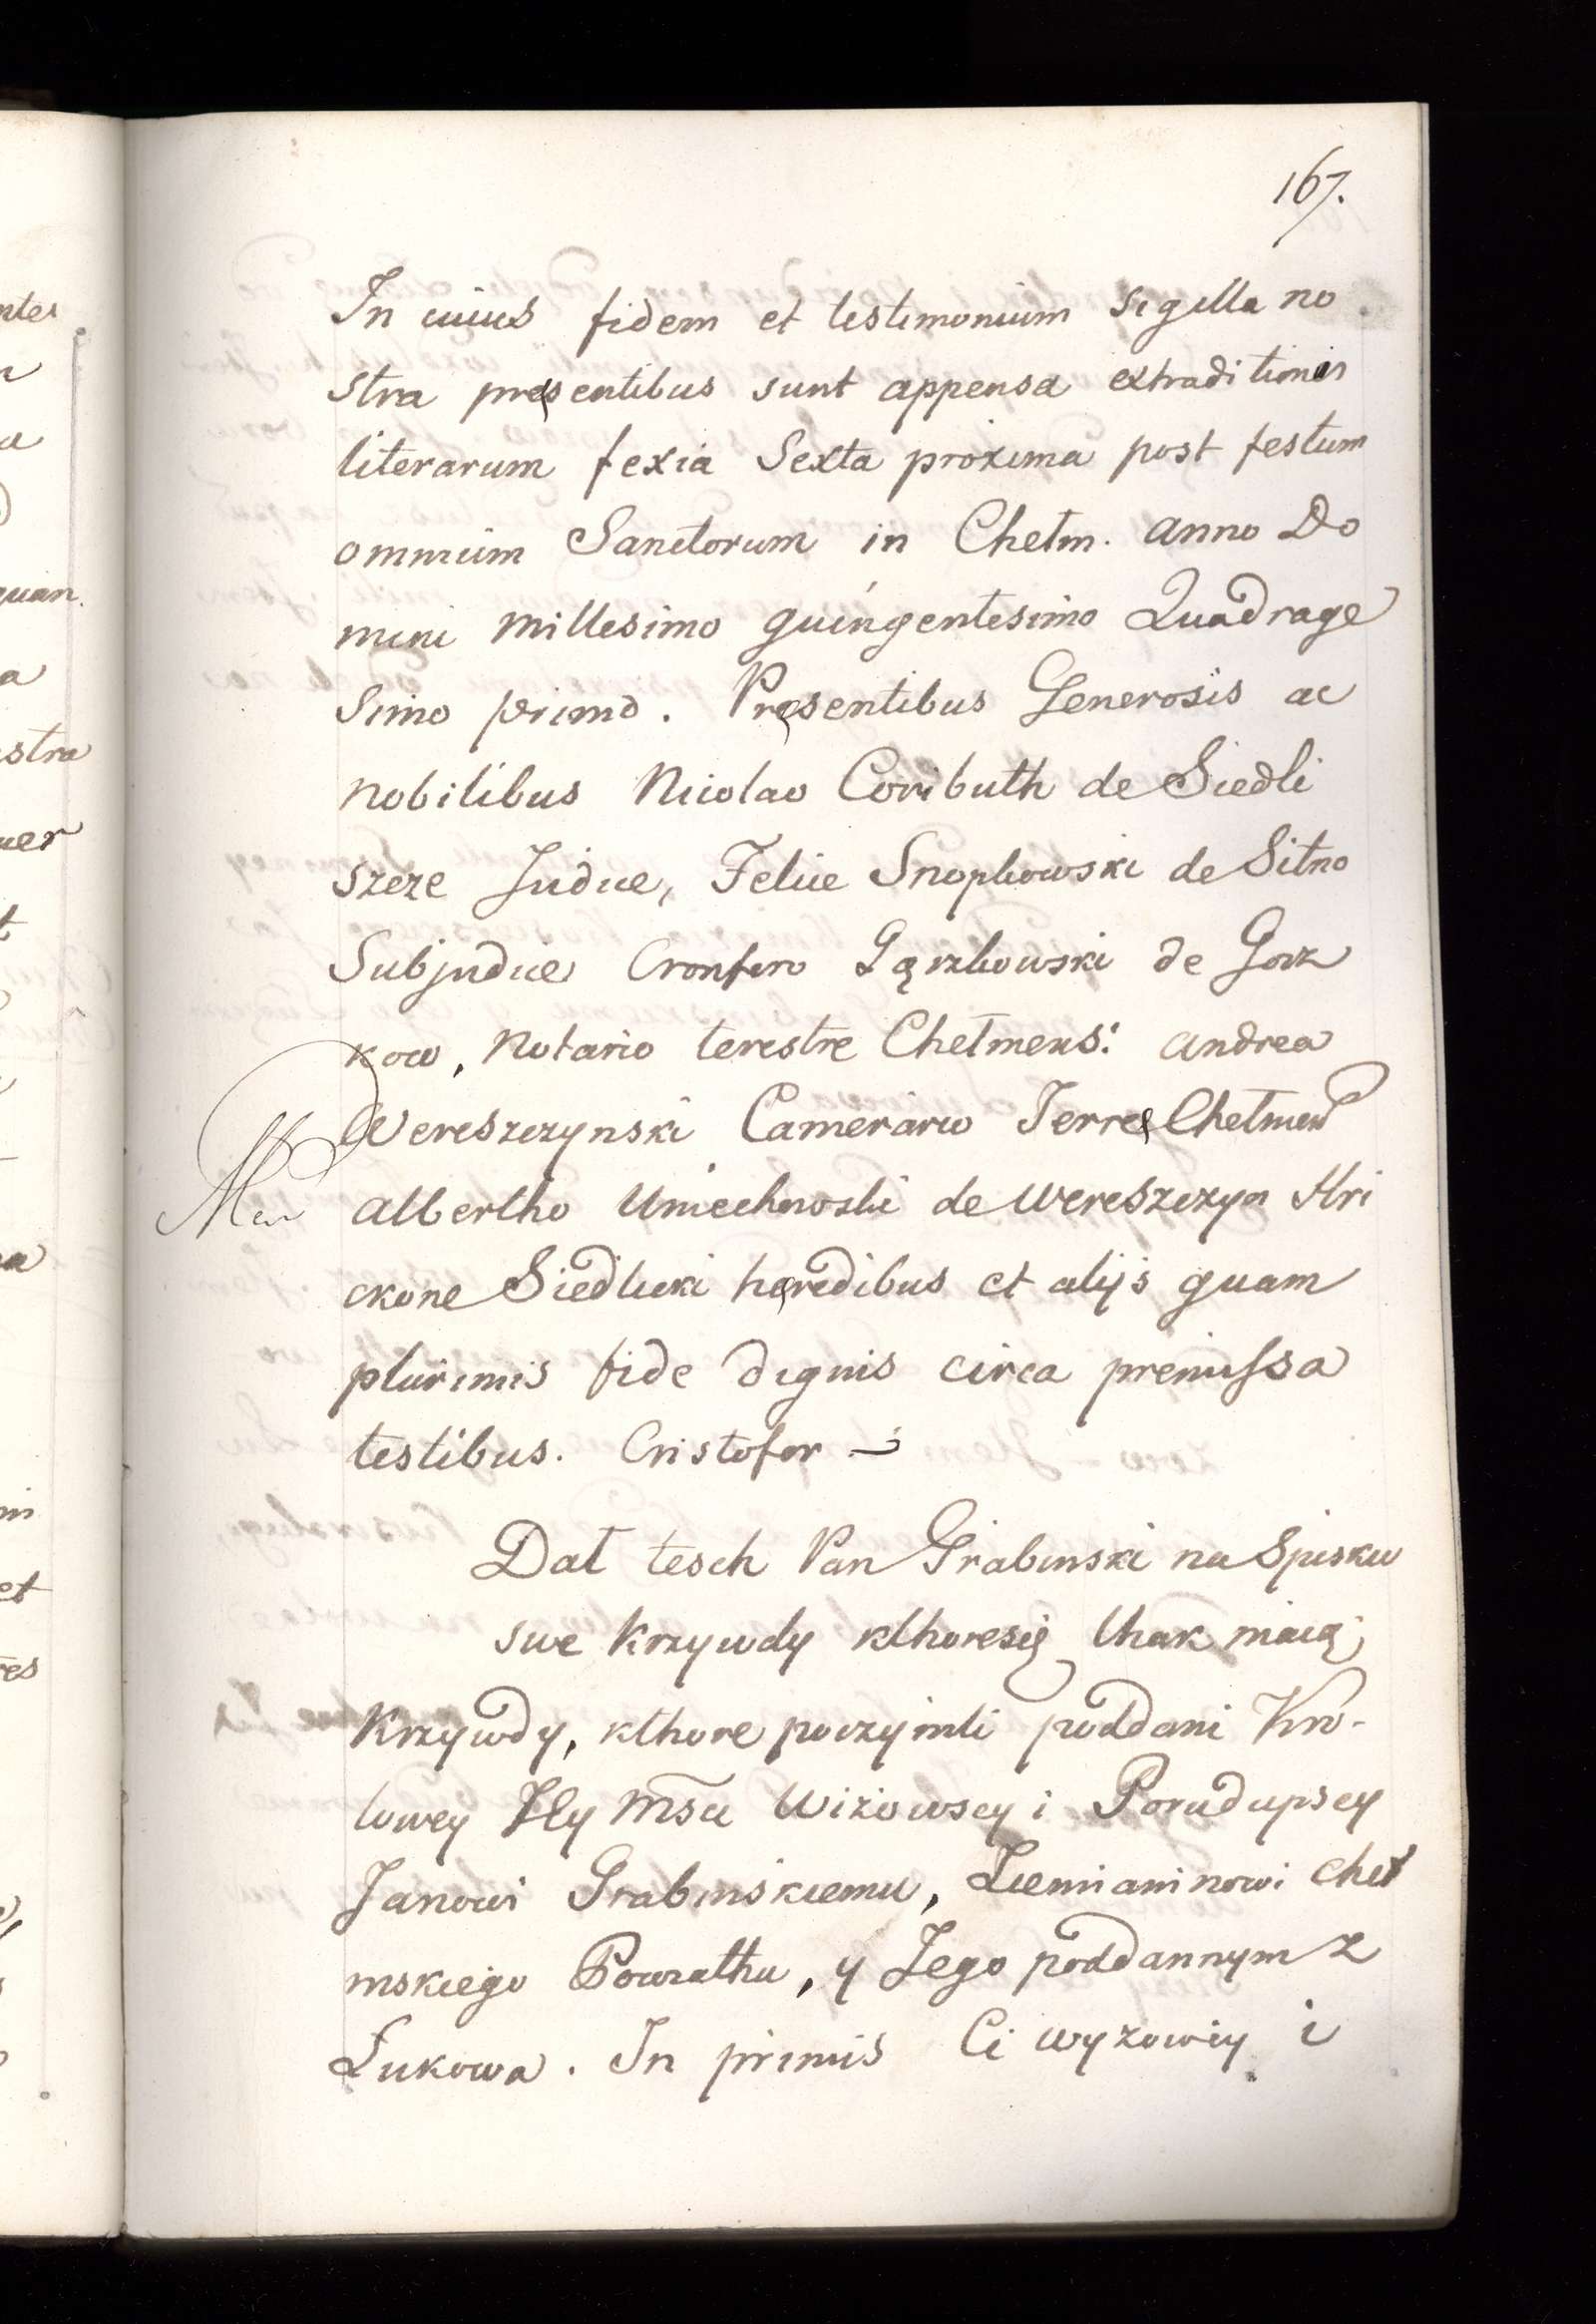 167.
In cuius fidem et testimonium sigilla no
stra pręsentibus sunt appensa extraditionis
literarum fexia Sexta proxima post festum
omnium Sanctorum in Chełm. anno Do
mini millesimo quingentesimo Quadrage
simo primo. Pręsentibus Generosis ac
nobilibus Nicolao Coributh de Siedli
szcze Judice, Felice Snopkowski de Sitno
Subjudice Gąrzkowski de Gorz
kow, Notario terestre Chełmens: andrea
Wereszczynski Camerario Terrę Chełmen
albertho Uniechowski de Wereszczyn Hri
ckone Siedlicki hęredibus et alijs quam
plurimis fide dignis circa premissa
testibus. Cristofor —
Dał tesch Pan Grabinski na Spisku
swe Krzywdy kthoresię thak maią;
Krzywdy, kthore poczynili poddani Kro-
lowey Jey Msci Wizowscy i
Janowi Grabinskiemu, Ziemianinowi cheł
mskiego Powiathu, y Jego poddannym z
Łukowa. In primis Ci wyzowsy i